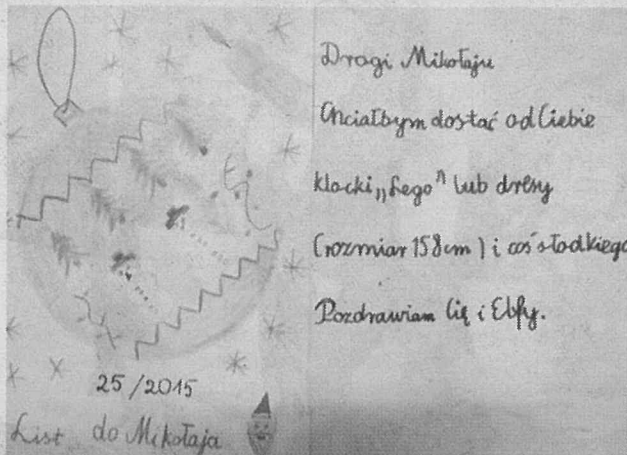 Drogi Mikołaju
Chciałbym dostać od Ciebie
klocki „Lego” lub dresy
(rozmiar 158cm) i coś słodkiego
Pozdrawiam Cię i Elfy.
25/2015
List do Mikołaja